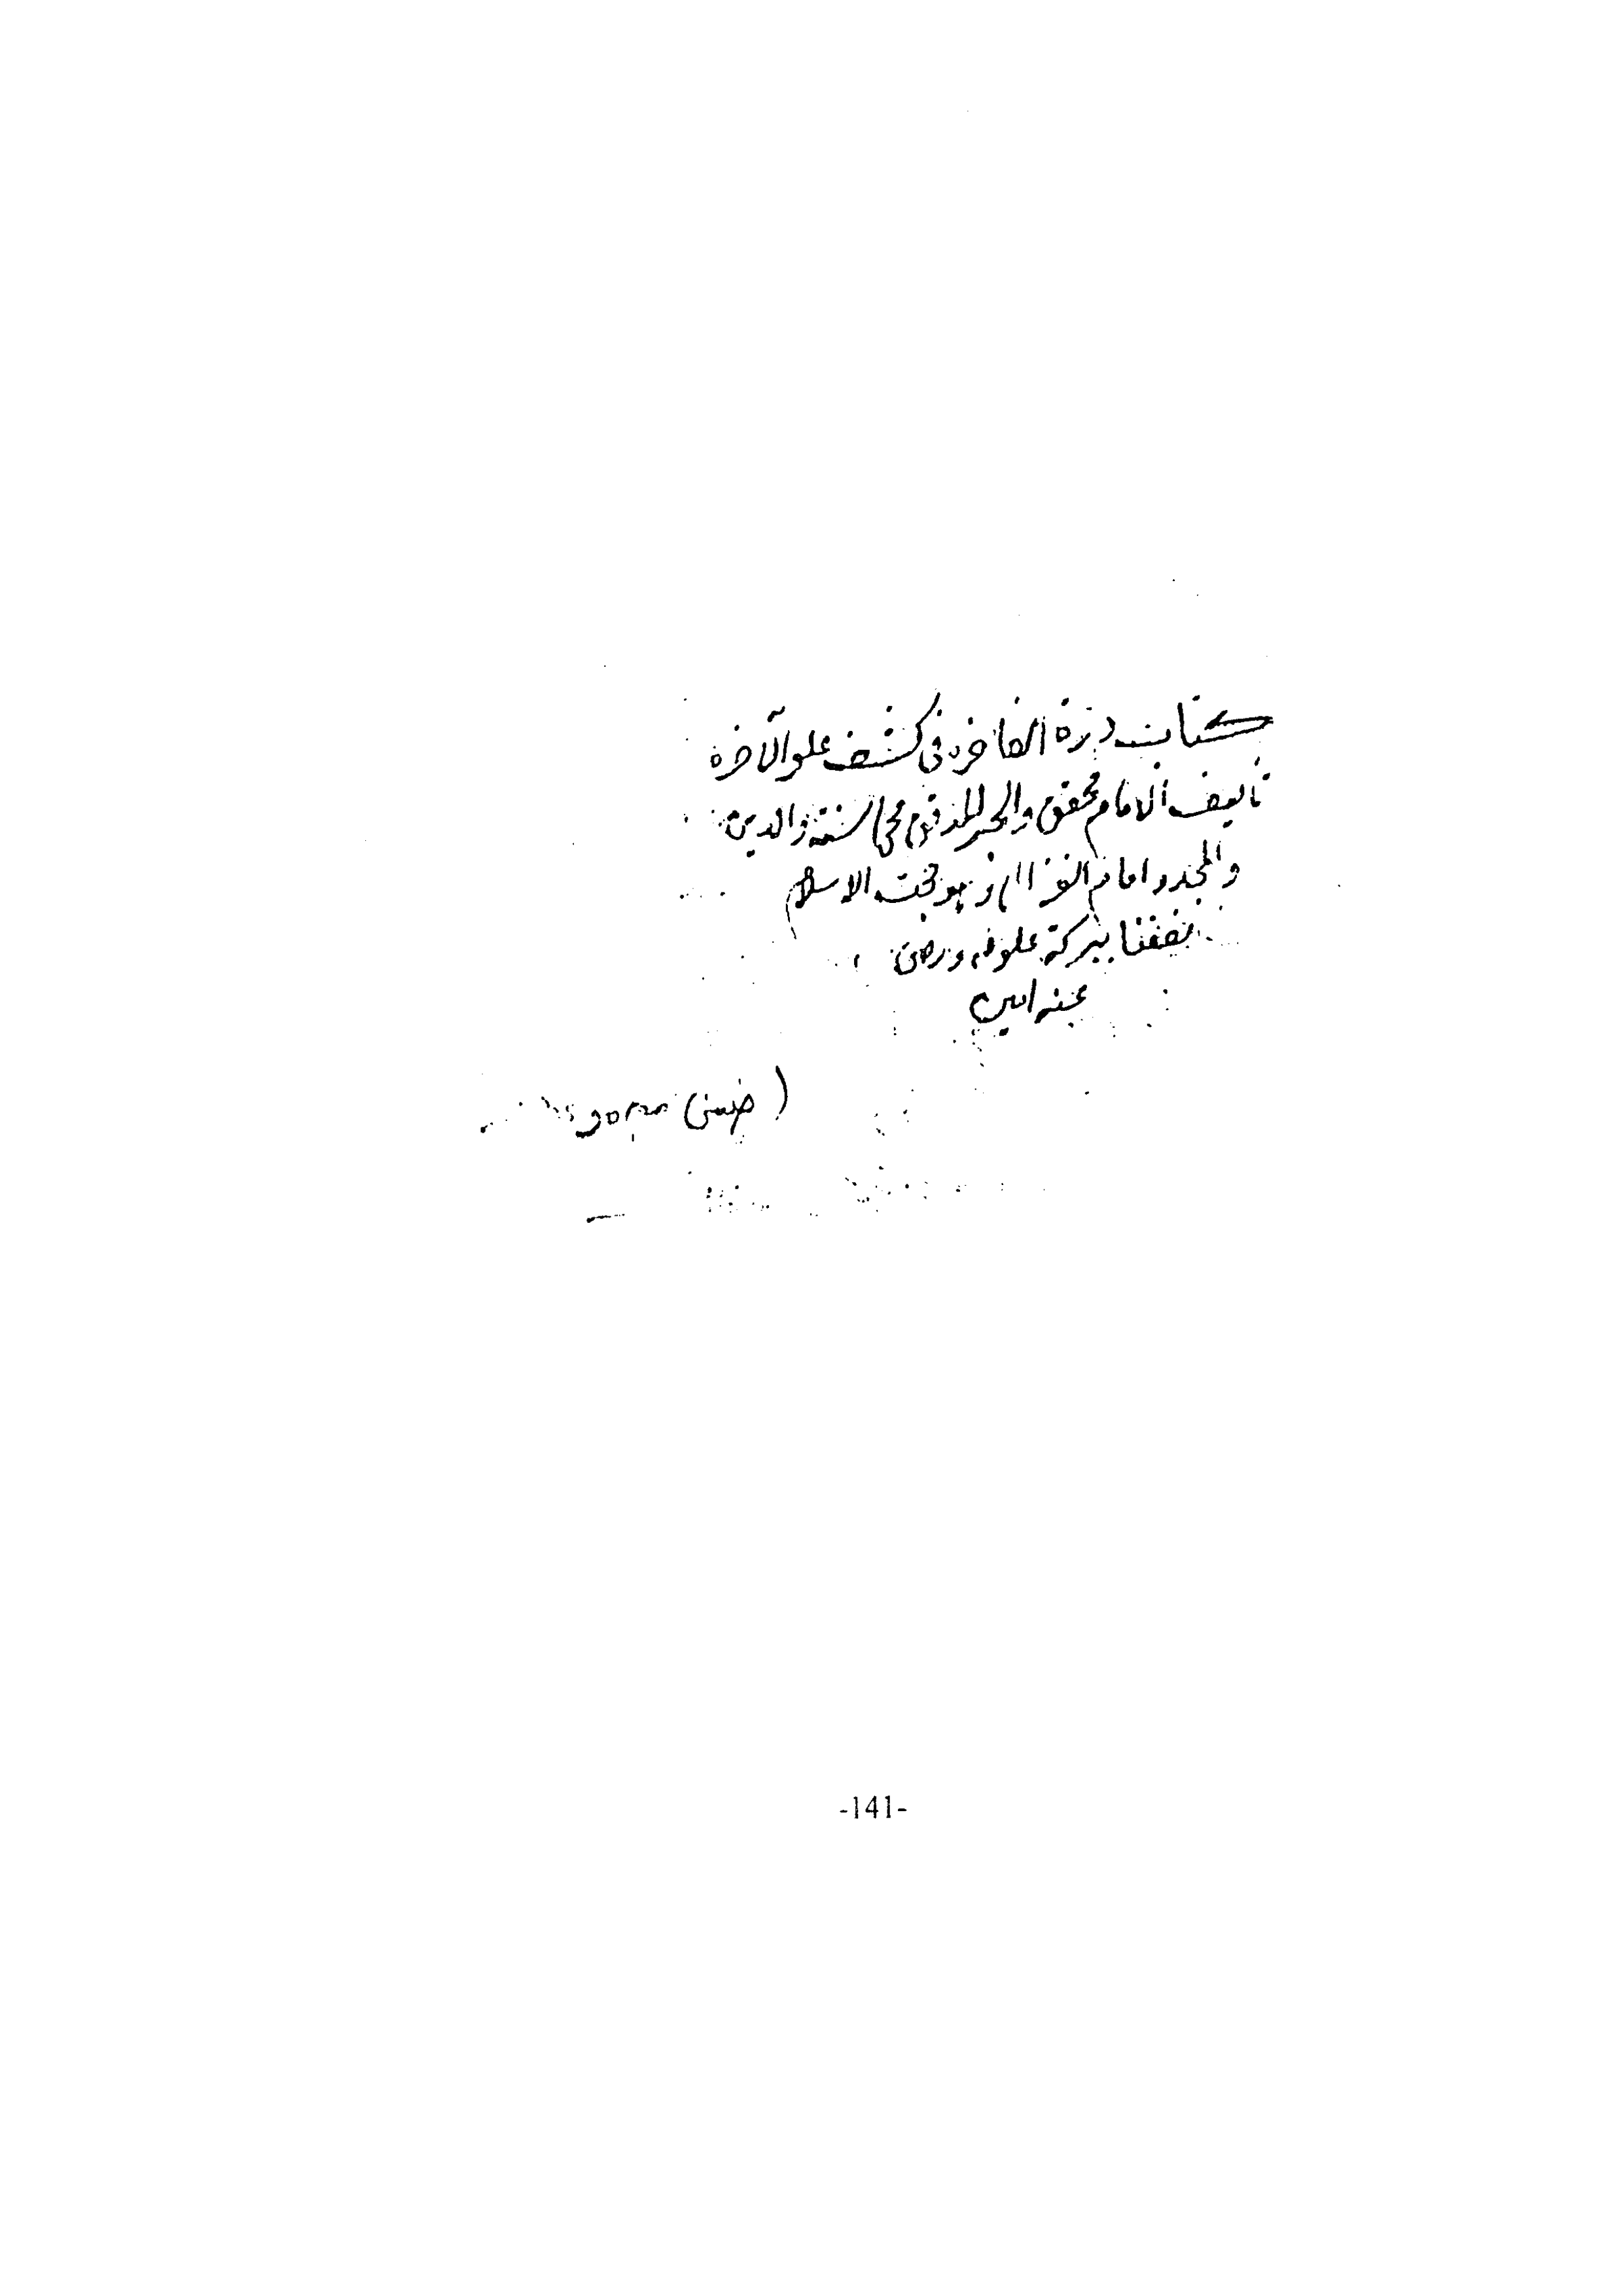 كتاب درة الفاخره فى كشف علوم الآخره
تأليف الامام محقق والحبر المدقق محى السنة والدين
والمجدد امام الغزالى وهو حجت الاسلام
نفعنا ببركة علومه ورضى
عنه امين
(ضمن) مجموع
-141-